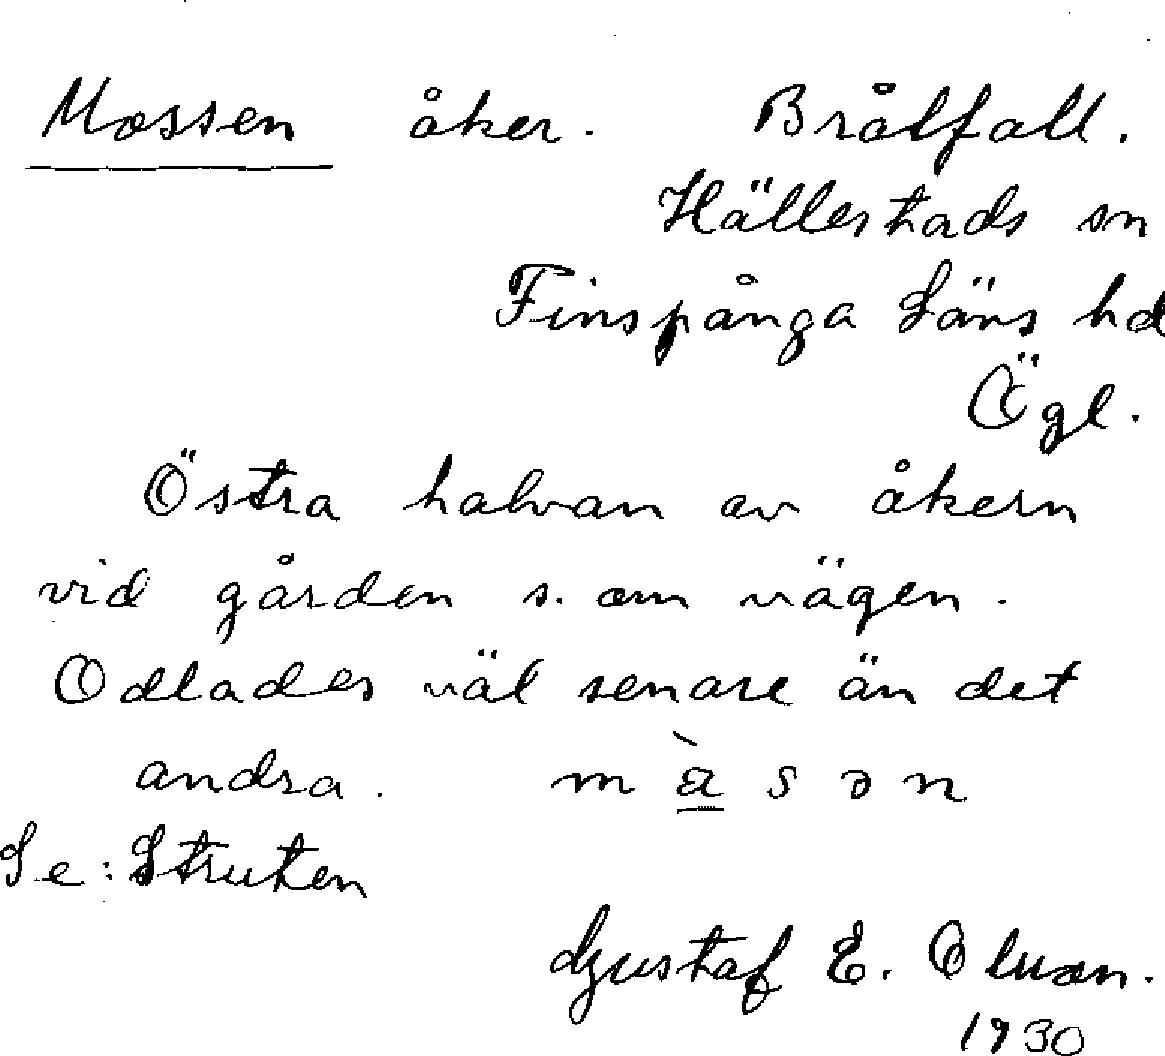 Mossen åker. Brålfall.
Hällestads sn
Finspånga Läns hd
Ögl.
Östra halvan av åkern
vid gården s. om vägen.
Odlades väl senare än det
andra. m à s ə n
Se: Struten
Gustaf E.
1930